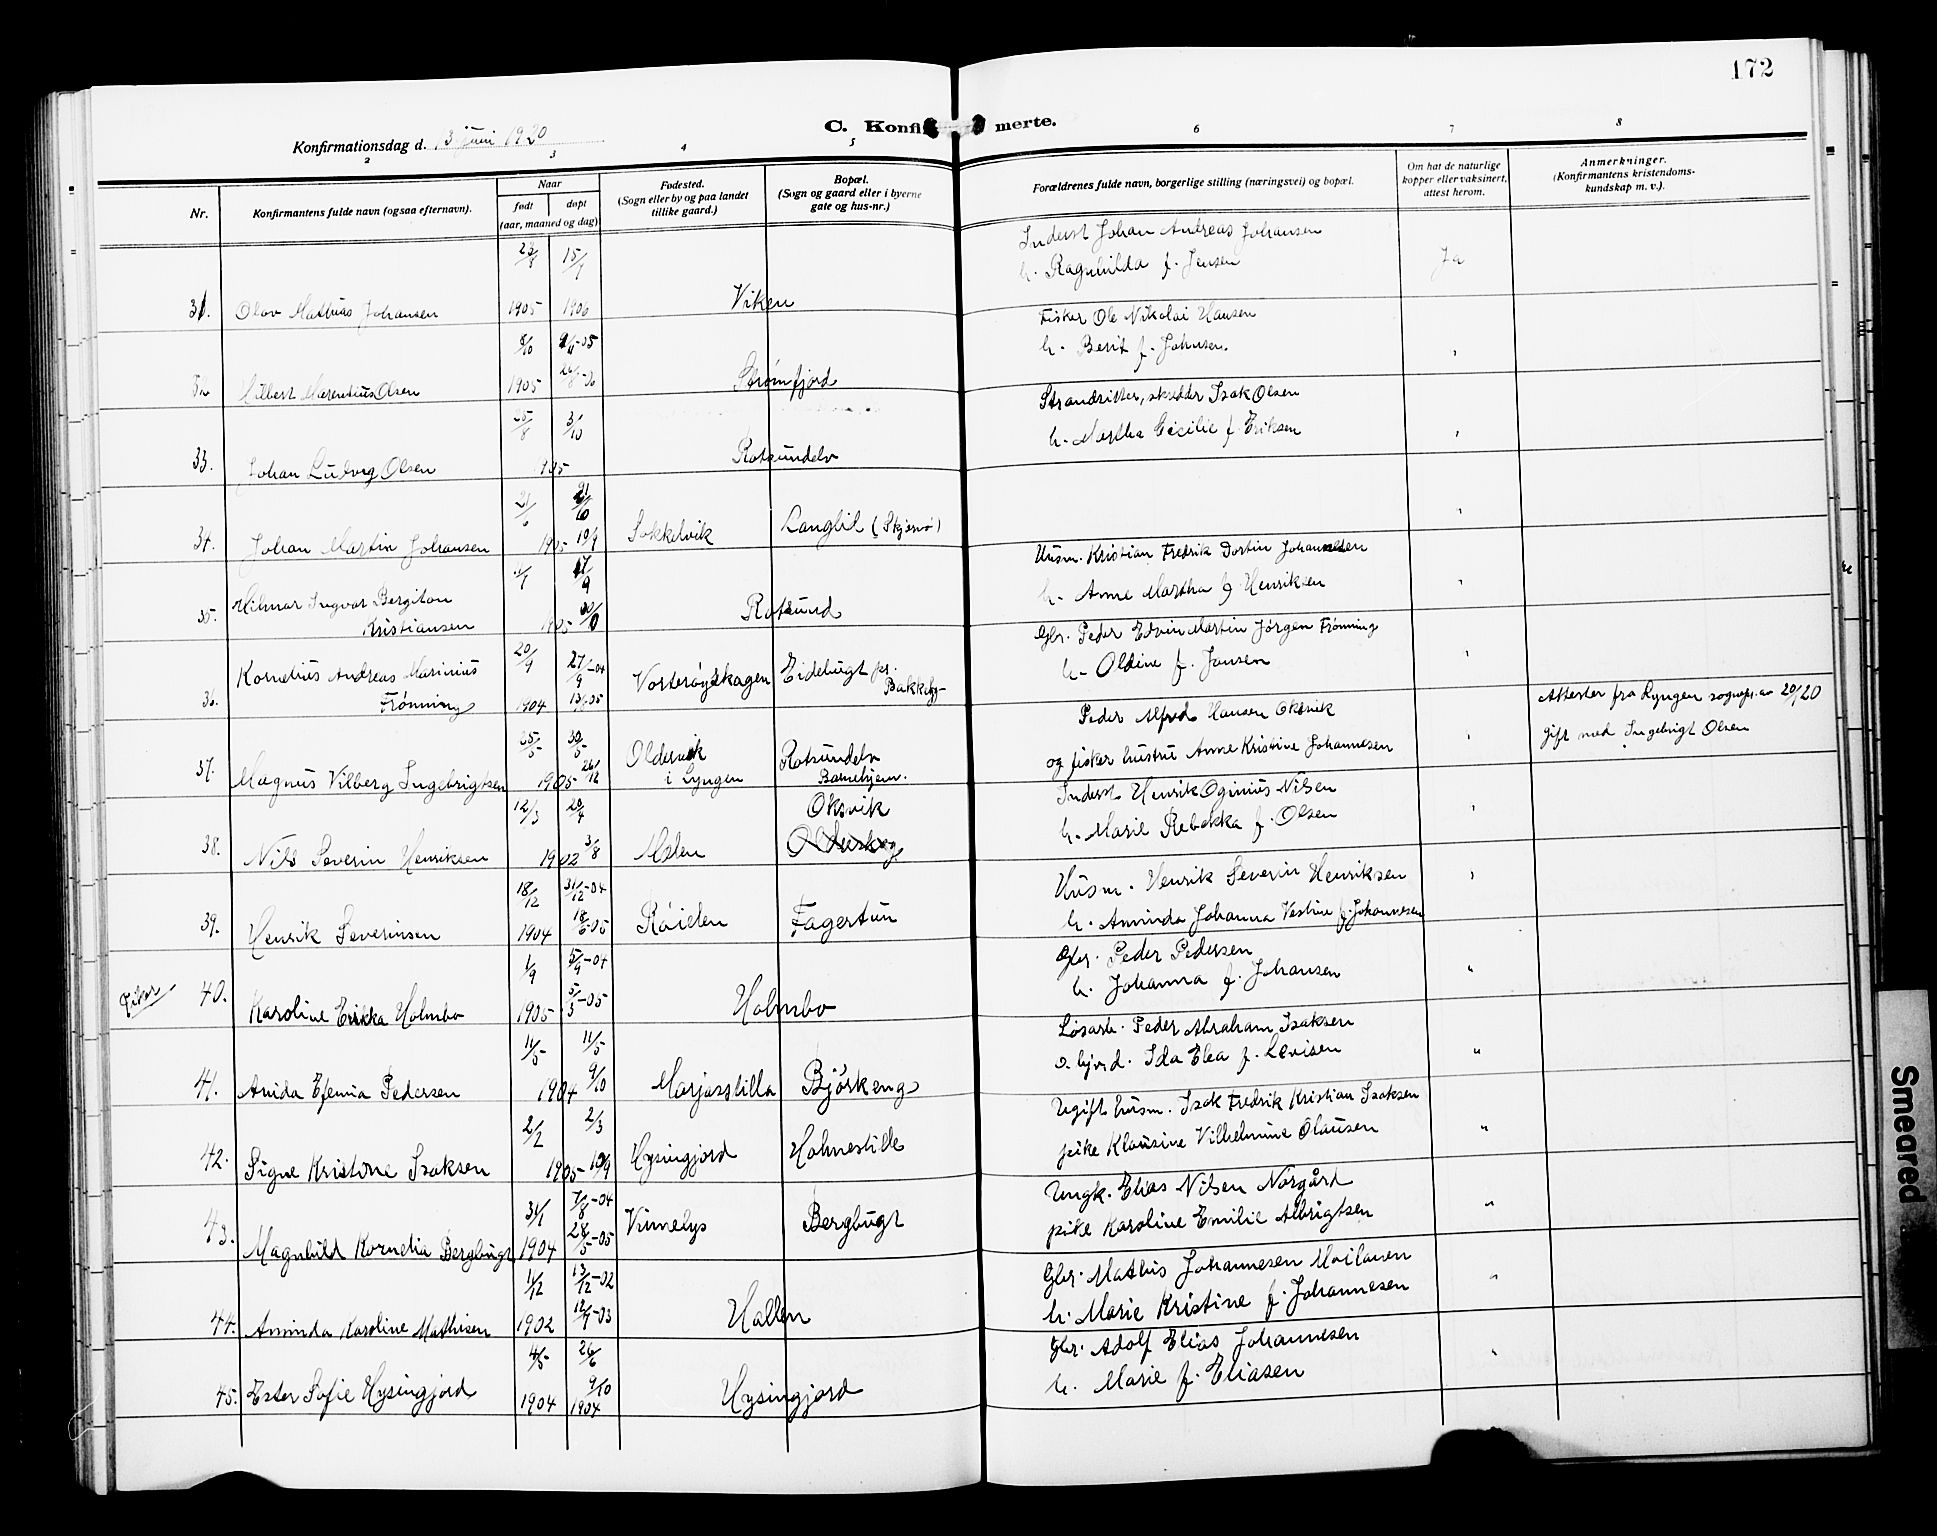 172
C. Konfi merte.
Konfirmationsdag d. 13 juni 1920
2 3 4 5 6 7 8
Nr.
Konfirmantens fulde navn (ogsaa efternavn).
Naar
født døpt
(aar, maaned og dag)
Fødested.
(Sogn eller by og paa landet
tillike gaard.)
Bopæl.
(Sogn og gaard eller i byerne
gate og hus-nr.)
Forældrenes fulde navn, borgerlige stilling (næringsvei) og bopæl.
Om hat de naturlige
kopper eller vaksinert,
attest herom.
Anmerkninger.
(Konfirmantens kristendoms-
kundskap m. v.).
15/1
Inderst Johan Andreas Johansen
h. Ragnhilda f. Jensen Ja
31. Olav Mathias Johansen 1905 1906 Viken
Fisker Ole Nikolai Hansen
h. Berit f. Johnsen.
Hilbert Marentius Olsen 1905 Strømfjord
Strandsitter, skredder Isak Olsen
h. Martha Cecilie f. Eriksen
25/8 3/10
33. Johan Ludvig Olsen 1905 Rotsundelv
34. Johan Martin Johansen 1905 Sokkelvik Langlid (Skjervø)
Husm. Kristian Fredrik Dortin Johannesen
h. Anne Martha f. Henriksen
35. Hilmar Ingvar Bergiton
Kristiansen 1905 Rotsund
Gbr. Peder Edvin Martin Jørgen Frønning
h. Oldine f. Jansen
36. Kornelius Andreas Marinius
Frønning 1904 27/9-04 Vorterøyskagen Eidebugt pr.
Bakkeby
Peder Alfred Hansen Oksvik
og fisker hustru Anne Kristine Johannesen
Attester fra Lyngen sognepr. av 20/1 20
gift med Ingebrigt Olsen
37. Magnus Vilberg Ingebrigtsen 25/5 30/5 1905 26/12 Oldervik
i Lyngen Rotsundelv
Barnehjem.
Inderst Henrik Oginius Nilsen
h. Marie Rebekka f. Olsen
38. Nils Severin Henriksen 12/3 20/4 1902 3/8 Molen Oksvik
Husm. Henrik Severin Henriksen
h. Aminda Johanna Vestine f. Johannesen
39. Henrik Severinsen 18/12 1904 31/12-04 18/6-05 Röielen Fagertun
Gbr. Peder Pedersen
h. Johanna f. Johansen "
Piker
40. Karoline Erikka Holmbo 1/9 1905 5/9-04 5/3-05 Holmbo
Løsarb. Peder Abraham Isaksen
o. hjvd. Ida Elea f. Levisen "
41. Anida Efenia Pedersen 11/5 11/5 1904 9/10 Marjasstilla Björkeng
Ugift husm. Isak Fredrik Kristian Isaksen
pike Klausine Vilhelmine Olausen "
42. Signe Kristine Isaksen 2/2 2/3 1905 10/9 Hysingjord Holmestille
Ungk. Elias Nilsen Norgård
pike Karoline Emilie Albrigtsen "
43. Magnhild Kornelia Bergbugt 31/1 1904 7/8-04 28/5-05 Vinnelys Bergbugt
Gbr. Mathis Johannesen Moilanen
h. Marie Kristine f. Johannesen "
44. Aminda Karoline Mathisen 11/12 1902 13/12-02 12/7-03 Hallen
Gbr. Adolf Elias Johannesen
h. Marie f. Eliasen
45. Ester Sofie Hysingjord 4/5 1904 26/6 9/10 1904 Hysingjord
Smeared